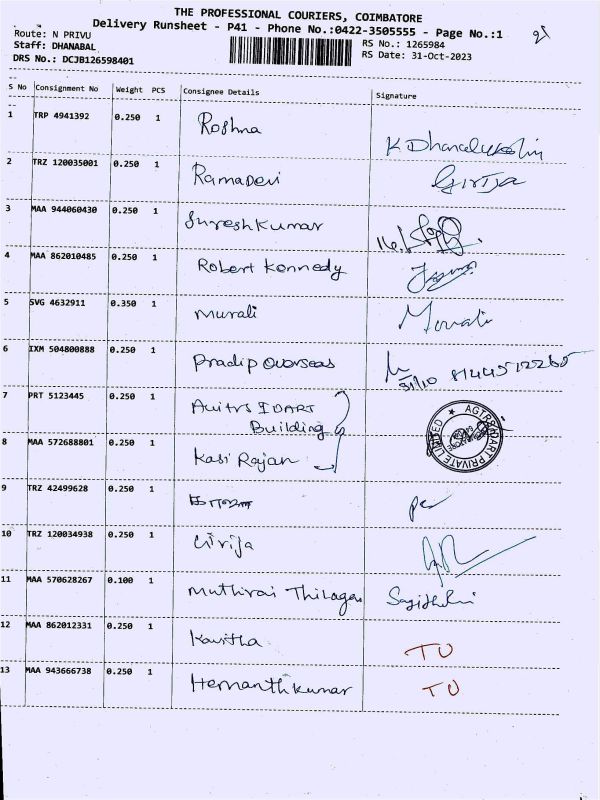 THE PROFESSIONAL COURIERS, COIMBATORE
Delivery Runsheet - P41 - Phone No.:0422-3505555 - Page No.:1
Route: N PRIVU
RS No.: 1265984
Staff: DHANABAL
RS Date: 31-Oct-2023
DRS No.: DCJB126598401
S No Consignment No Weight PCS Consignee Details Signature
1 TRP 4941392 0.250 1 Roshna K Dhanalakshmi
2 TRZ 120035001 0.250 1 RamaDevi Girija
3 MAA 944060430 0.250 1 Sureshkumar
4 MAA 862010485 0.250 1 Robert Kennedy
5 SVG 4632911 0.350 1 Murali Murali
6 IXM 504800888 0.250 1 Pradip Overseas 31/10
7 PRT 5123445 0.250 1 IDART
Building
8 MAA 572688801 0.250 1 Kasi Rajan PRIVATE LIMITED
9 TRZ 42499628 0.250 1
10 TRZ 120034938 0.250 1 Girija
11 MAA 570628267 0.100 1 Muthirai Thilagar
12 MAA 862012331 0.250 1 Kavitha TU
13 MAA 943666738 0.250 1 Hemanthkumar TU